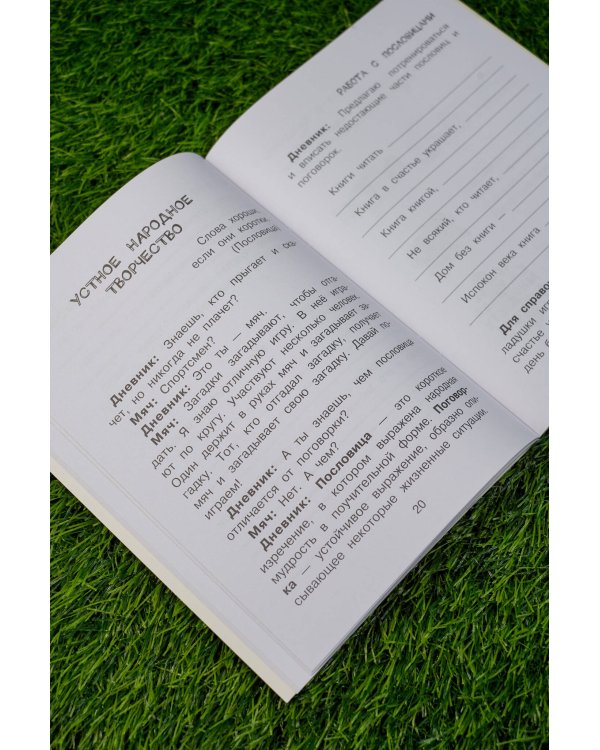 УСТНОЕ НАРОДНОЕ
ТВОРЧЕСТВО
Слова хороши,
если они коротки.
(Пословица)
Дневник: Знаешь, кто прыгает и ска-
чет, но никогда не плачет?
Мяч: Спортсмен?
Дневник: Это ты — мяч.
Мяч: Загадки загадывают, чтобы отга-
дать. Я знаю отличную игру. В неё игра-
ют по кругу. Участвуют несколько человек.
Один держит в руках мяч и загадывает за-
гадку. Тот, кто отгадал загадку, получает
мяч и загадывает свою загадку. Давай по-
играем!
Дневник: А ты знаешь, чем пословица
отличается от поговорки?
Мяч: Нет. А чем?
Дневник: Пословица — это короткое
изречение, в котором выражена народная
мудрость в поучительной форме. Поговор-
ка — устойчивое выражение, образно опи-
сывающее некоторые жизненные ситуации.
20
РАБОТА С ПОСЛОВИЦАМИ
Дневник: Предлагаю потренироваться
и вписать недостающие части пословиц и
поговорок.
Книги читать
Книга в счастье украшает,
Книга книгой,
Не всякий, кто читает,
Дом без книги —
Испокон века книга
Для справо
ладушки иг
счастье
день б